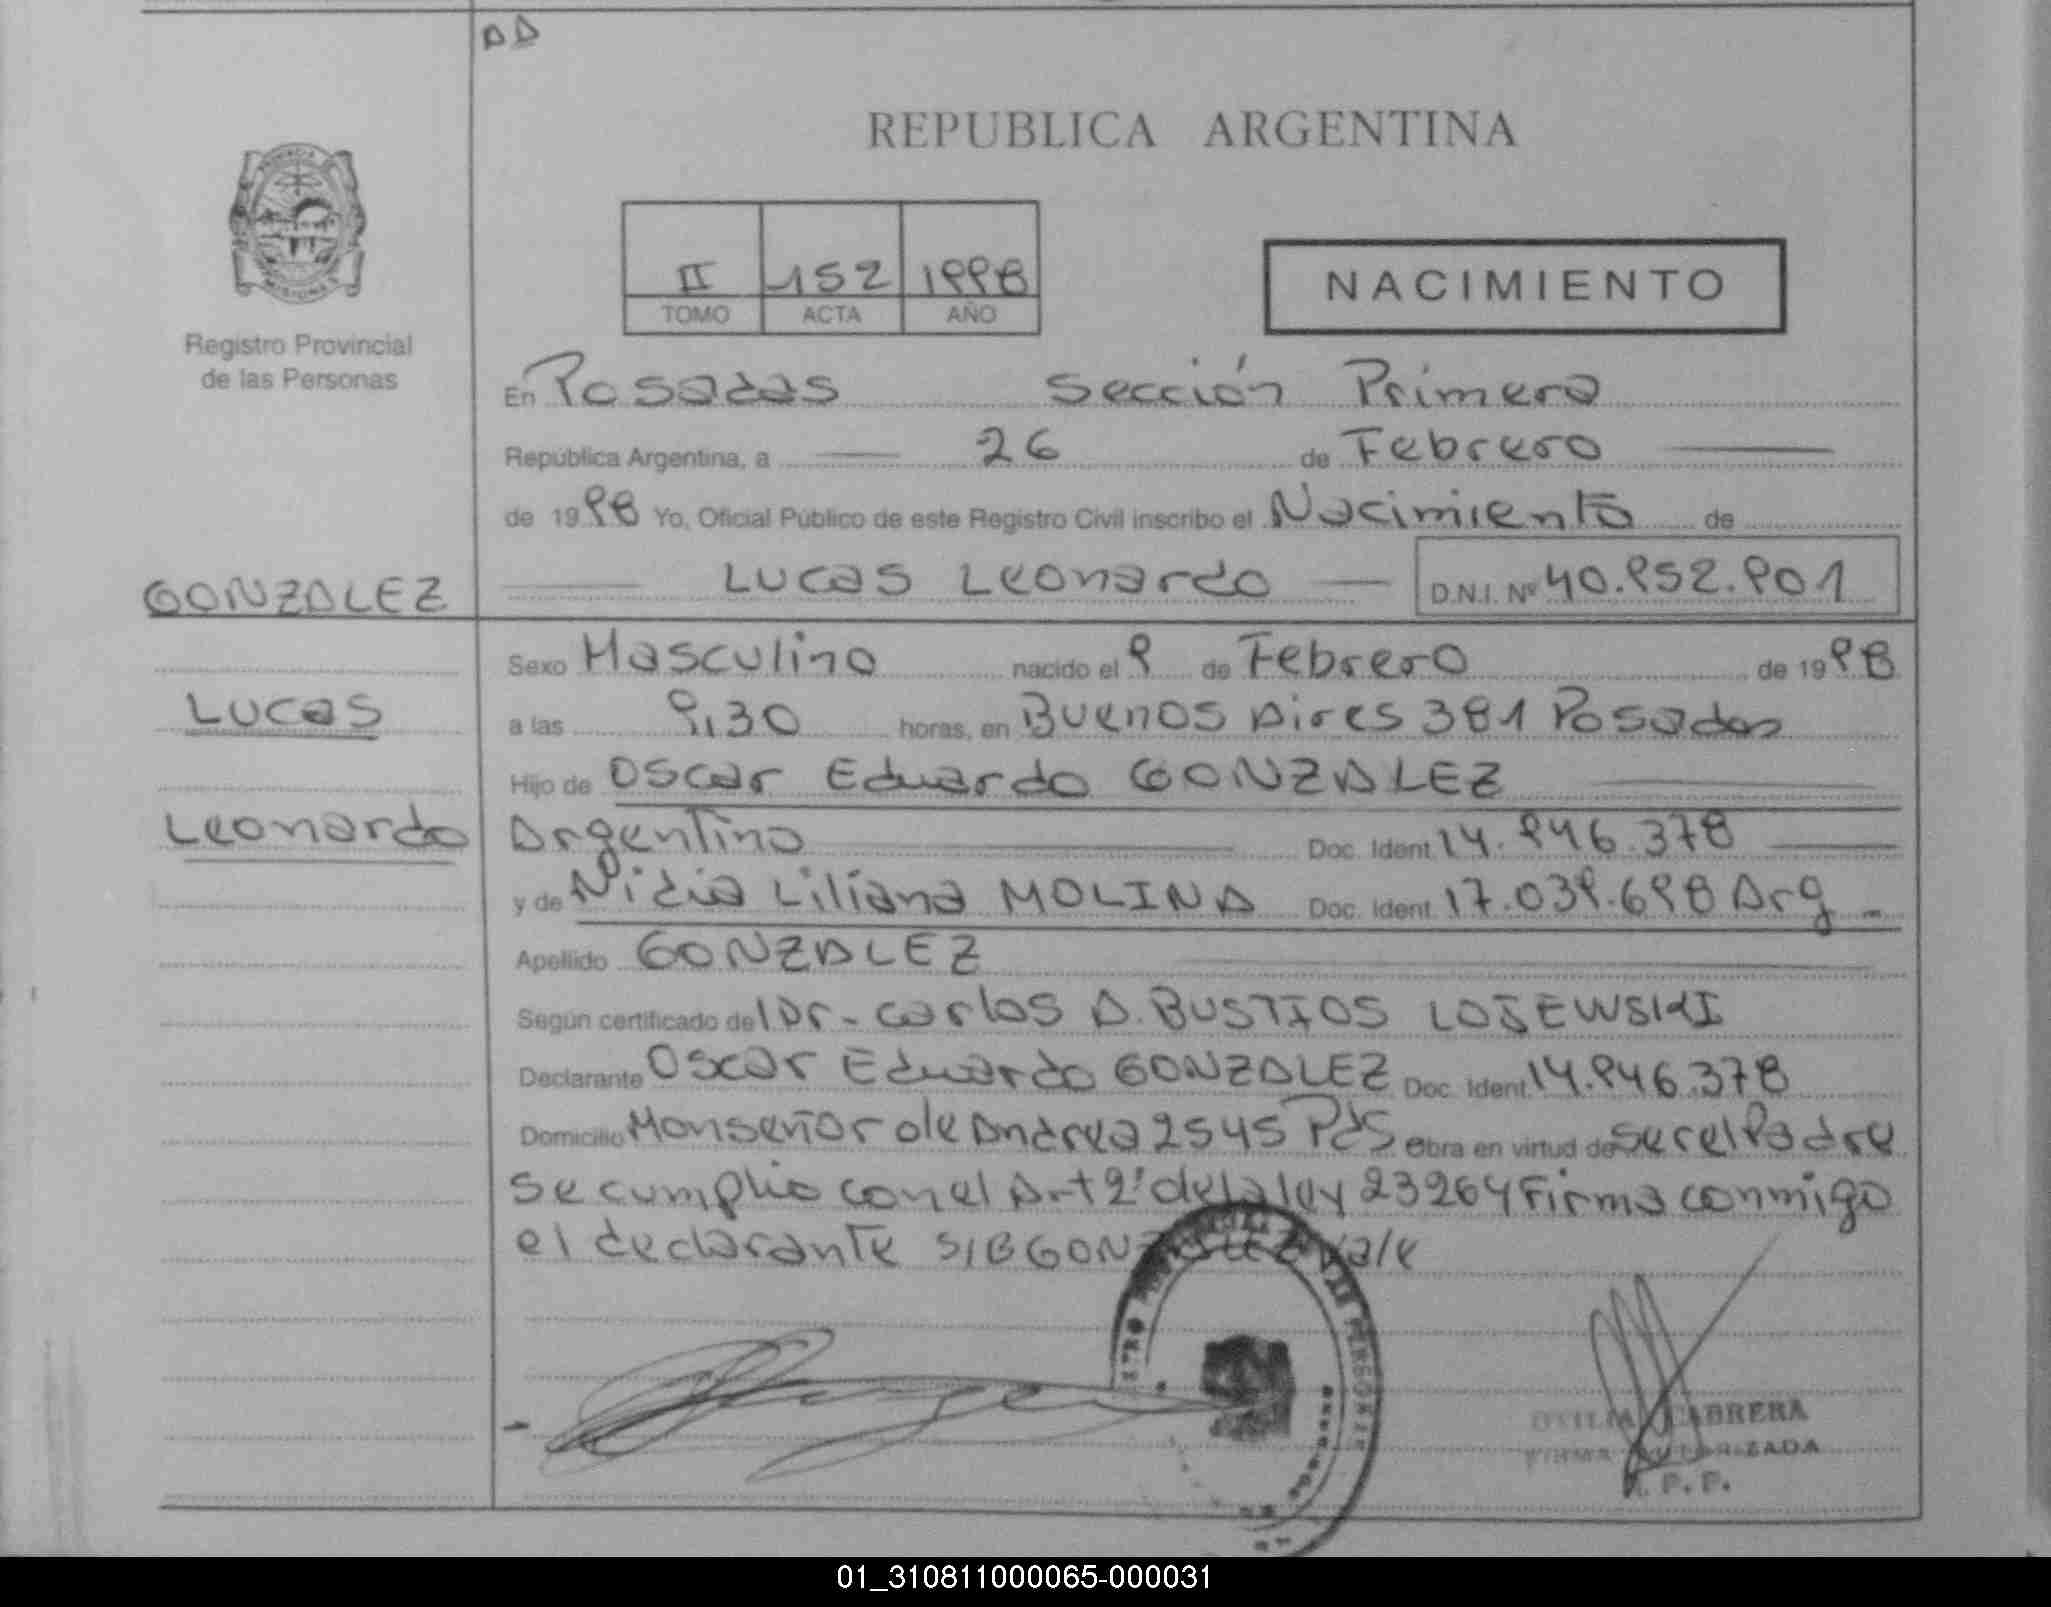 DD
REPUBLICA ARGENTINA
II 152 1998
TOMO ACTA AÑO
NACIMIENTO
Registro Provincial
de las Personas
En Posadas Sección Primera
República Argentina, a 26 de Febrero
de 1998 Yo, Oficial Público de este Registro Civil inscribo el Nacimiento de
GONZALEZ
Lucas Leonardo D.N.I. Nº 40.952.901
Sexo Masculino nacido el 9 de Febrero de 1998
Lucas
a las 9,30 horas, en Buenos Aires 381 Posadas
Hijo de Oscar Eduardo GONZALEZ
Leonardo
Argentino Doc. Ident. 14.946.378
y de Nidia Liliana MOLINA Doc. Ident. 17.039.698 Arg
Apellido GONZALEZ
Según certificado del Dr. Carlos A. BUSTIOS LOJEWSKI
Declarante Oscar Eduardo GONZALEZ Doc. Ident. 14.946.378
Domicilio Monseñor de Andrea 2545 Pds Obra en virtud de ser el Padre
se cumplio con el Art 2º de la ley 23264 Firma conmigo
el declarante S/B GONZALEZ Vale
CABRERA
FIRMA AUTORIZADA
R. P. P.
01_310811000065-000031